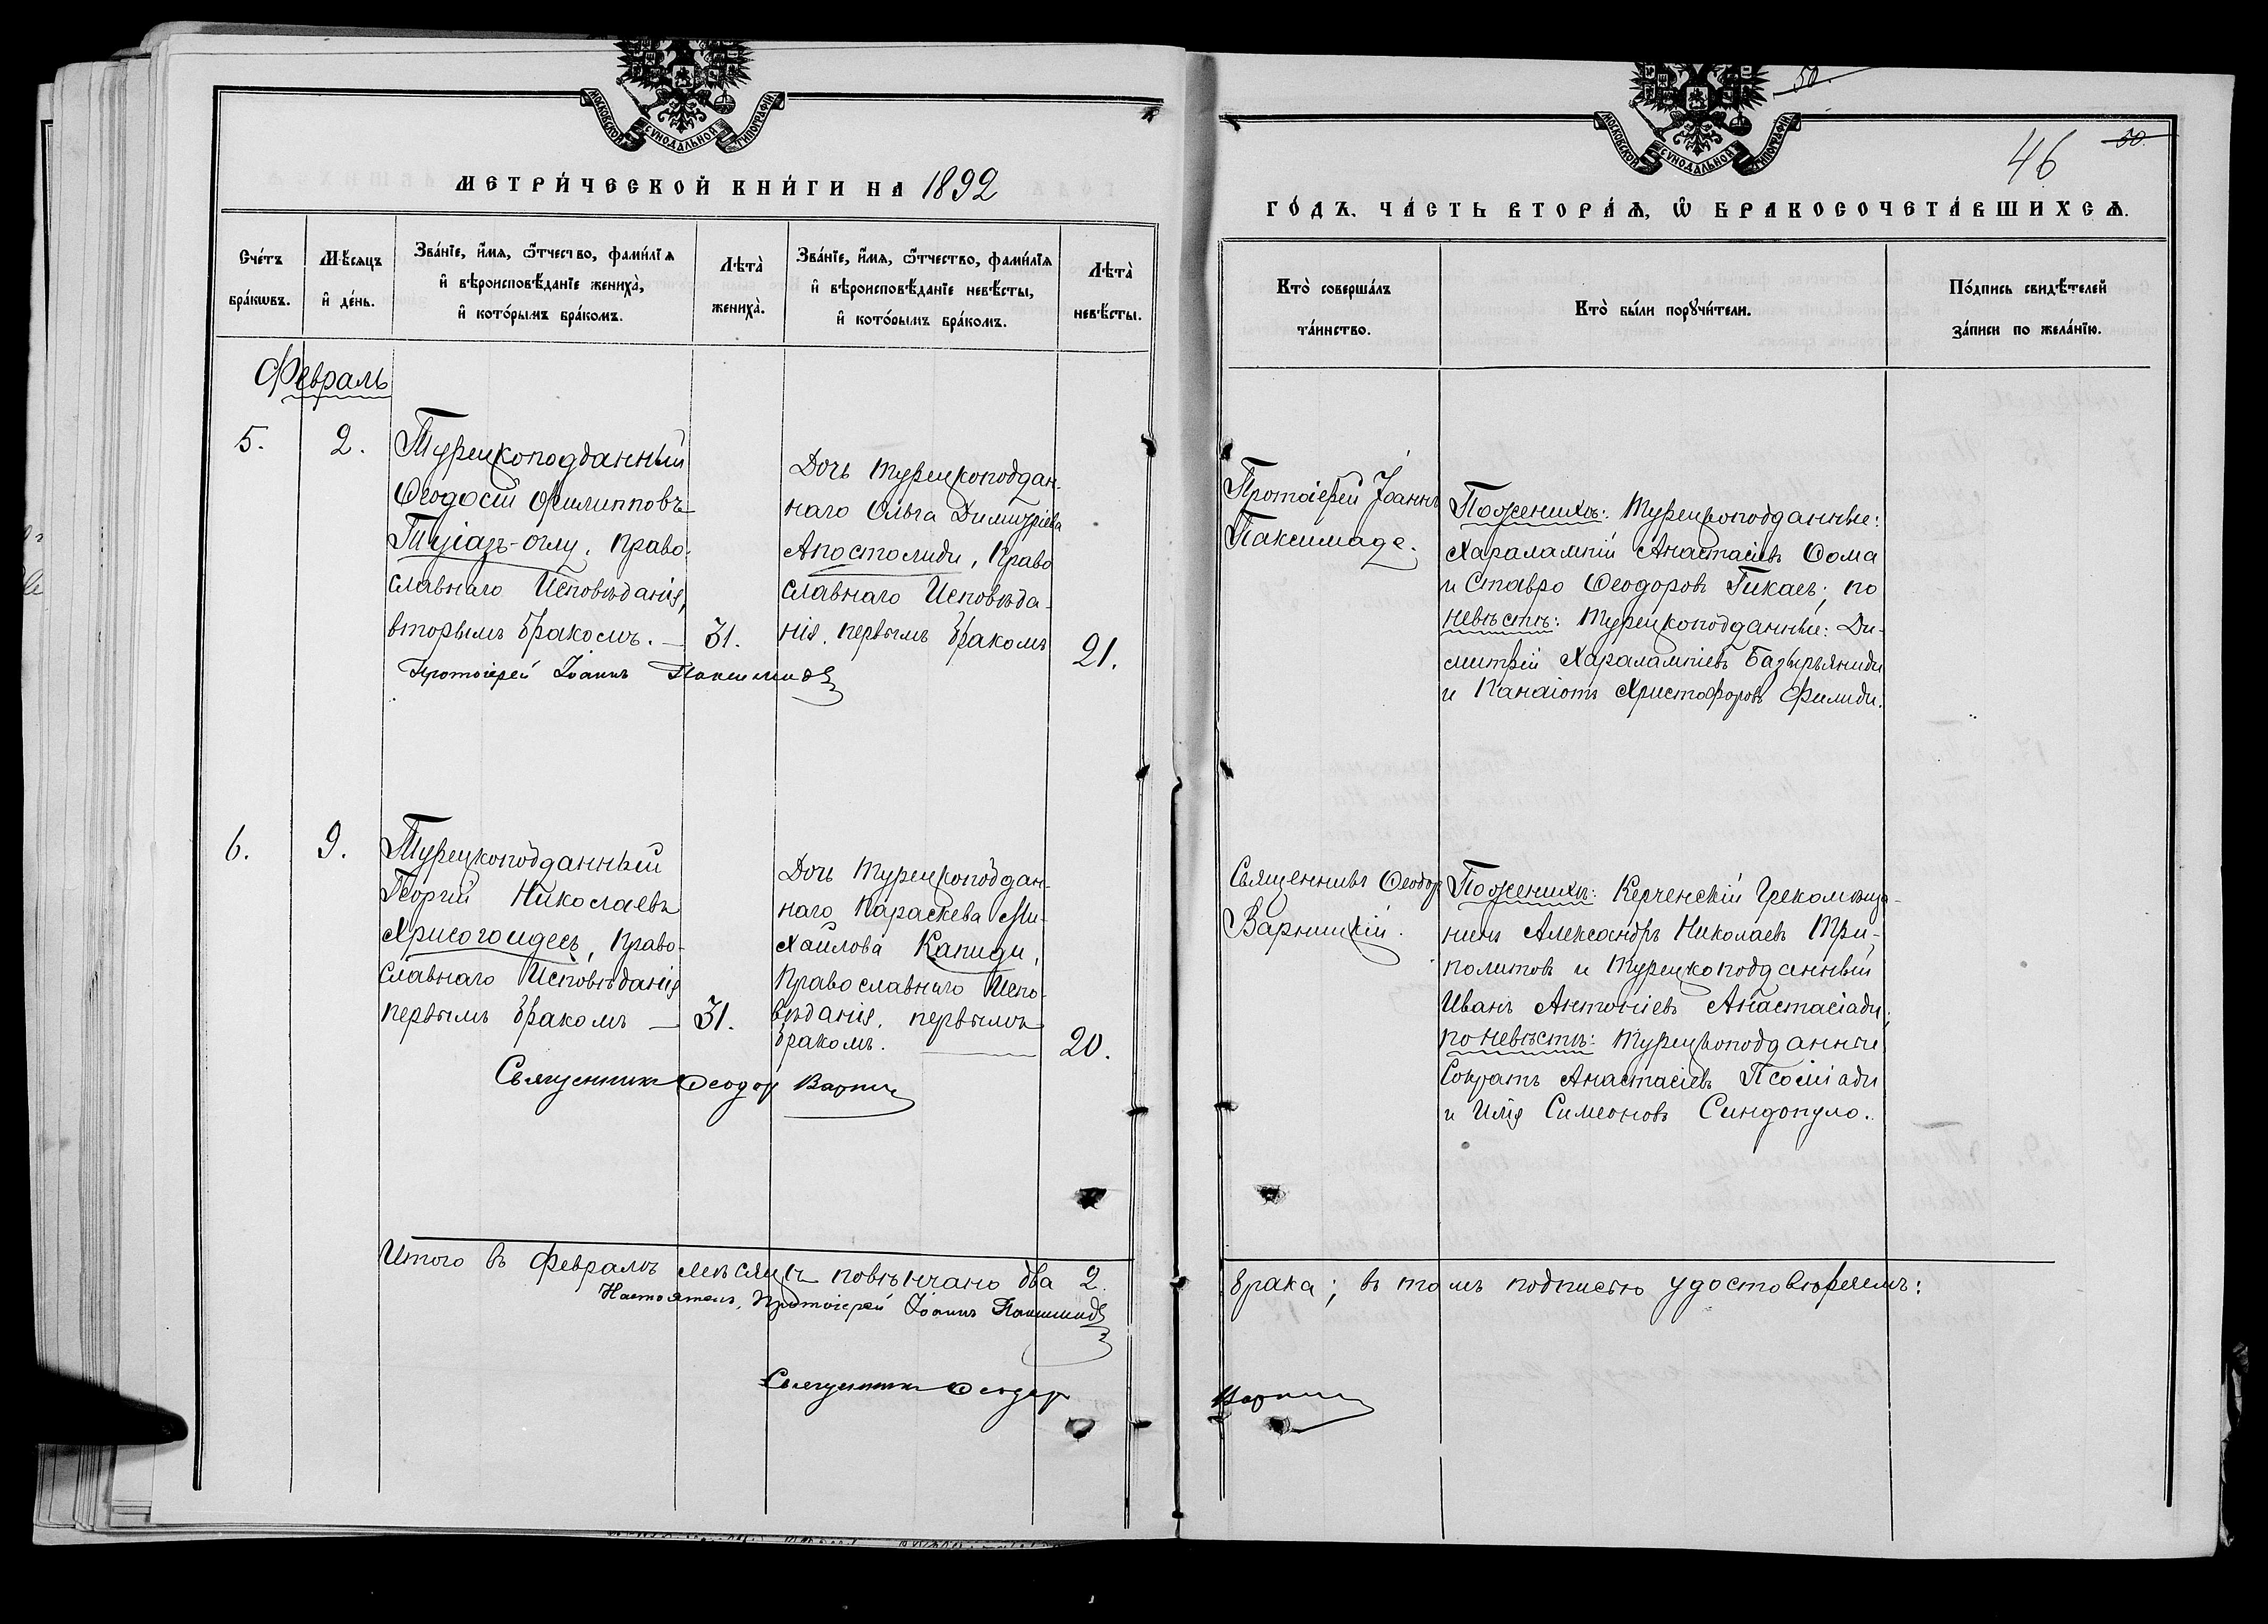 МОСКОВСКОЙ СѴНОДАЛЬНОЙ ТИПОГРАФІИ
МЕТРИ́ЧЕСКОЙ КНИ́ГИ НА 1892
Сче́тъ бра́кѡвъ.
Мѣ́сяцъ и҆ де́нь.
Зва́нїе, и҆́мя, ѻ҆́тчество, фами́лїя
и҆ вѣроисповѣ́данїе жениха̀,
и҆ кото́рымъ бра́комъ.
Лѣта̀ жениха̀.
Зва́нїе, и҆́мя, ѻ҆́тчество, фами́лїя
и҆ вѣроисповѣ́данїе невѣ́сты,
и҆ кото́рымъ бра́комъ.
Лѣта̀ невѣ́сты.
Февраль
5.
2.
Турецкоподданный
Ѳеодосій Филипповъ
Тугіазъ-оглу, Право-
славнаго Исповѣданія,
вторымъ бракомъ. —
31.
Дочь турецкоподдан-
наго Ольга Димитріева
Апостолиди, Право
славнаго Исповѣда-
нія. первымъ бракомъ
21.
Протоіерей Іоаннъ Паксимаде
6.
9.
Турецкоподданный
Георгій Николаевъ
Хрисогоидесъ, Право-
славнаго Исповѣданія
первымъ бракомъ —
31.
Дочь турецкоподдан-
наго Параскева Ми-
хайлова Капиди,
Православнаго Испо-
вѣданія. первымъ
бракомъ.
20.
Священникъ Ѳеодор Варниц
Итого въ Февралѣ мѣсяцѣ повѣнчано два 2.
Настоятель, Протоіерей Іоаннъ Паксимаде
Священникъ Ѳеодор
50.
МОСКОВСКОЙ СѴНОДАЛЬНОЙ ТИПОГРАФІИ
46
50.
ГО́ДЪ. ЧА́СТЬ ВТОРА́Я, Ѡ҆ БРАКОСОЧЕТА́ВШИХСЯ.
Кто̀ соверша́лъ
та́инство.
Кто̀ бы́ли порꙋчи́тели.
По́дпись свидѣ́телей
за́писи по жела́нїю.
Протоіерей Іоаннъ
Паксимаде.
По женихѣ: турецкоподданные:
Харалампій Анастасіевъ Ѳома
и Ставро Ѳеодоровъ Гикасъ; по
невѣстѣ: турецкоподданные: Ди-
митрій Харалампіевъ Базырьяниди
и Панаіотъ Христофоровъ Филиди.
Священникъ Ѳеодор
Варницкій.
По женихѣ: Керченскій Грекомѣща-
нинъ Александръ Николаевъ Три-
политовъ и турецкоподданный
Иванъ Антоніевъ Анастасіади;
по невѣстѣ: турецкоподданные
Сократъ Анастасіевъ Псоміади
и Илія Симеоновъ Синдопуло.
брака; въ томъ подписью удостовѣряемъ:
Варниц